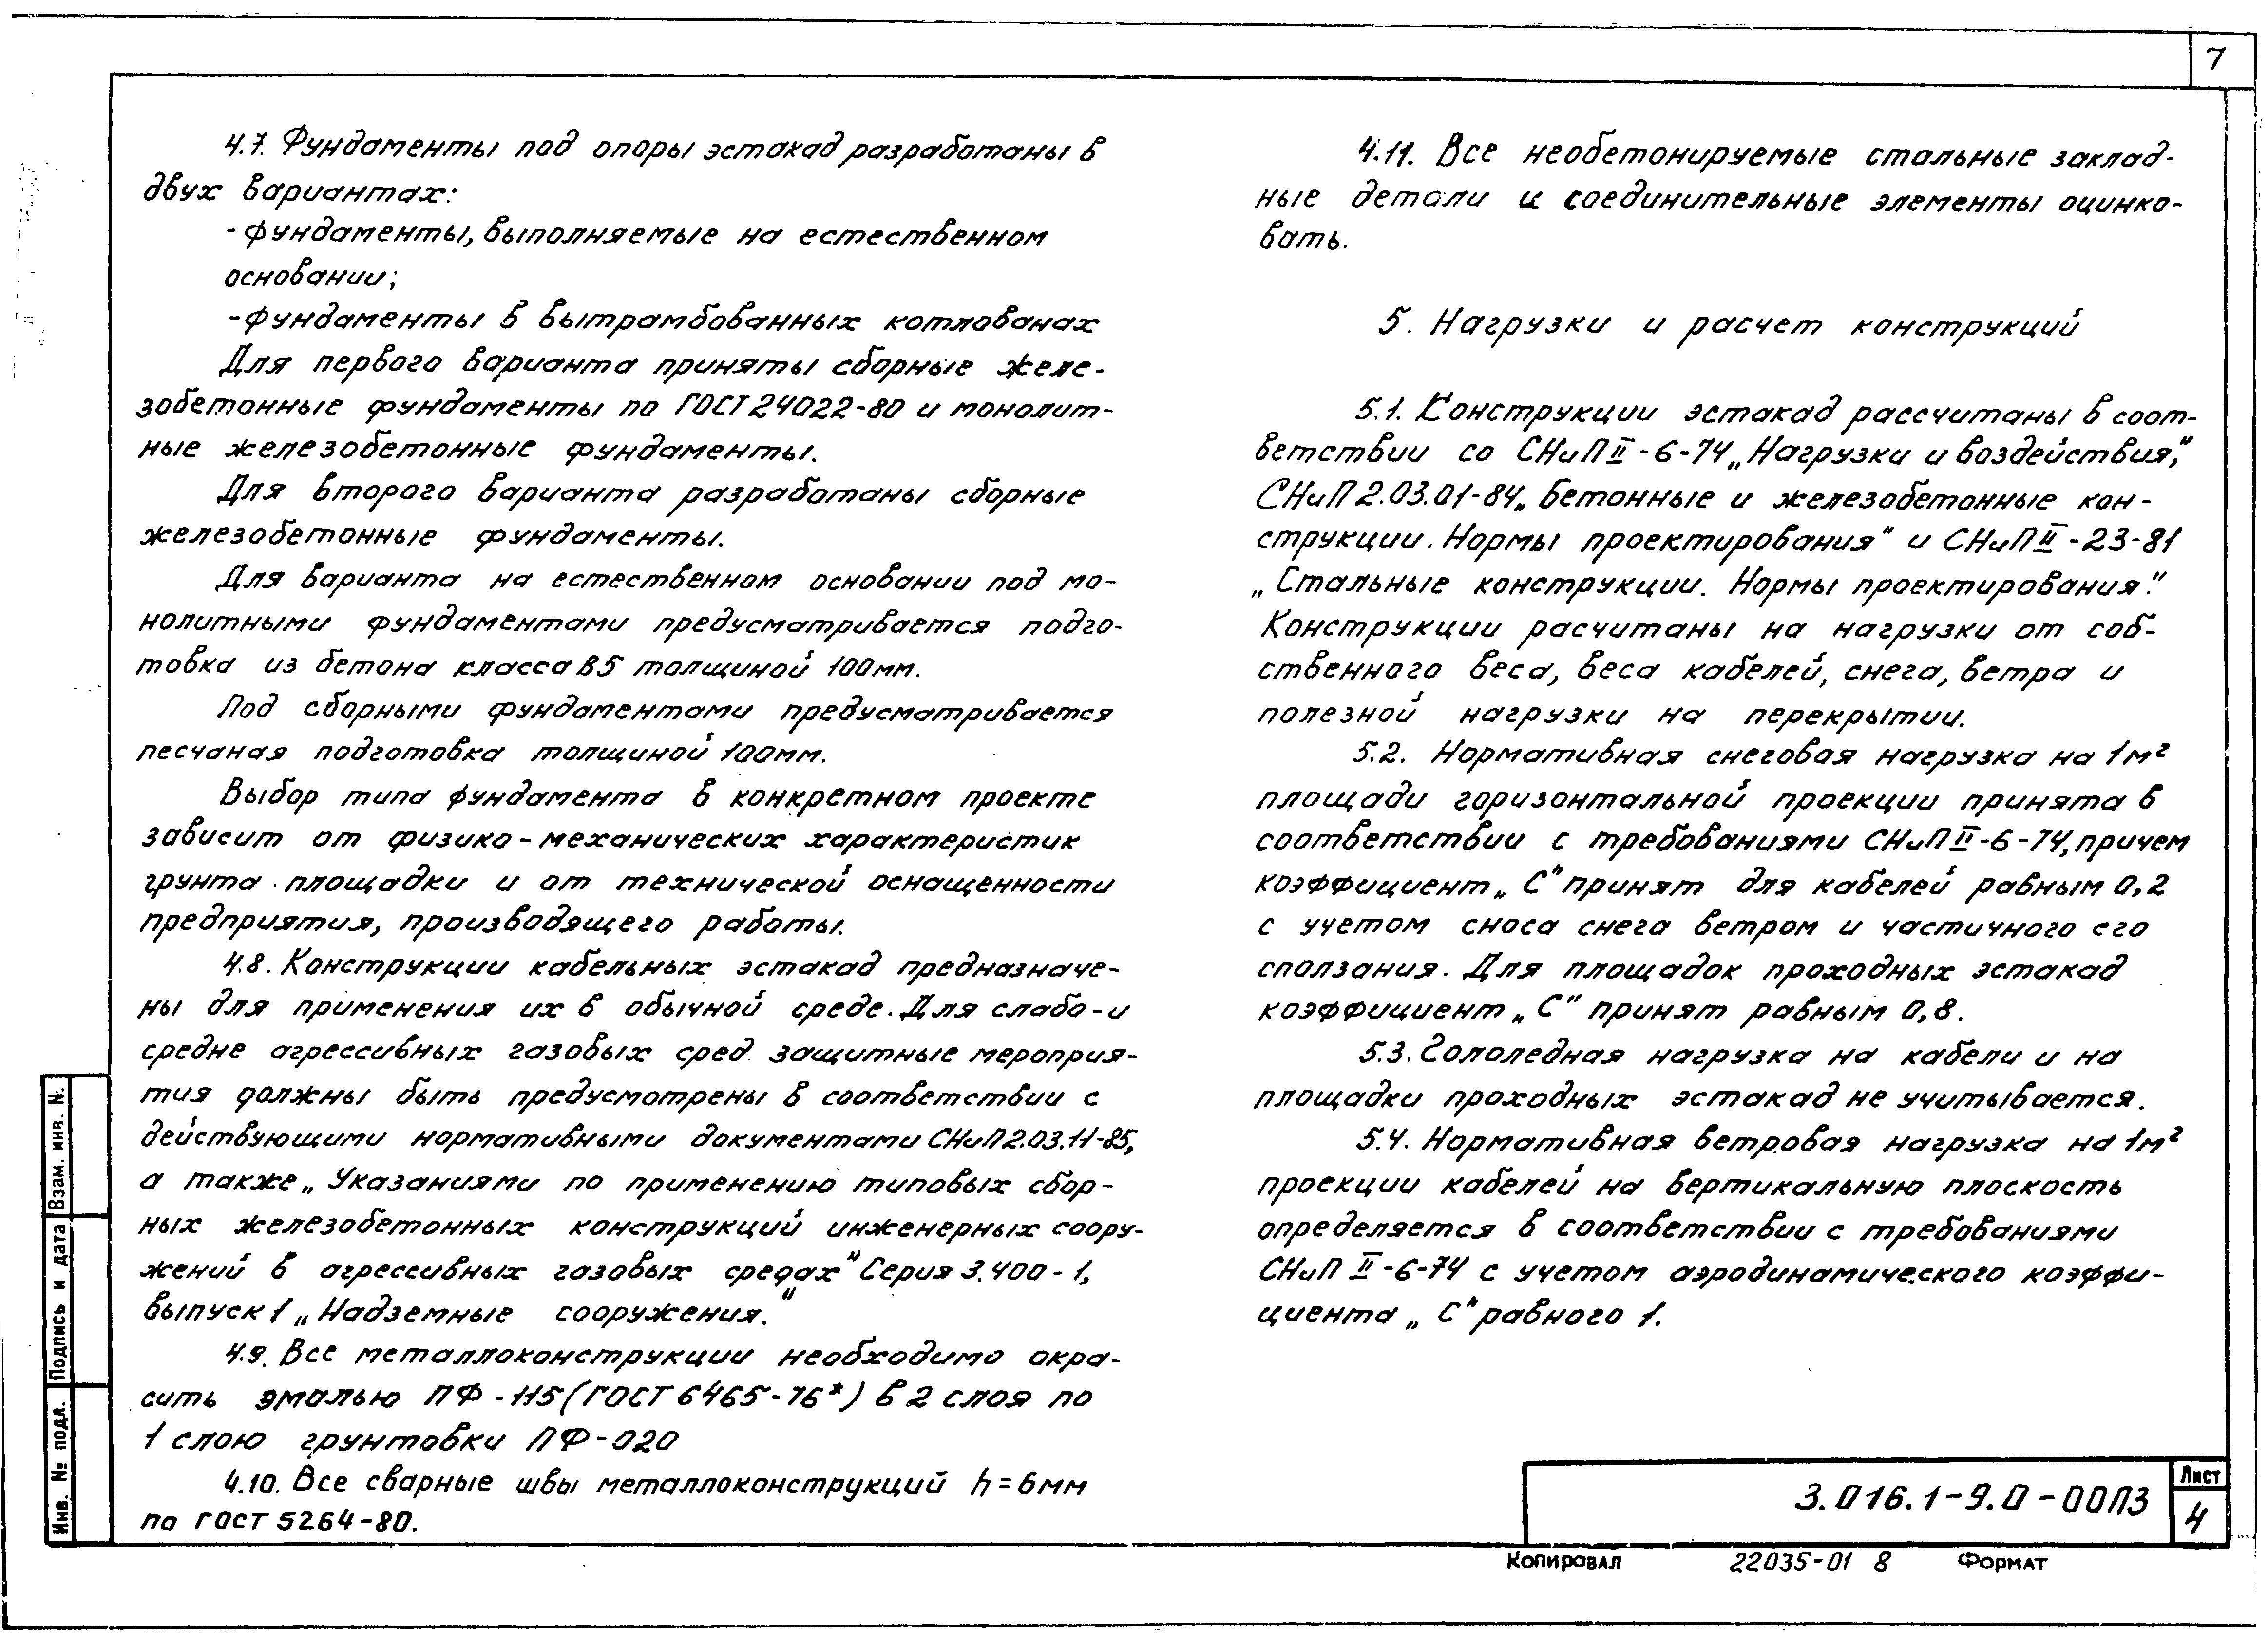 7
4.7. Фундаменты под опоры эстакад разработаны в
двух вариантах:
- фундаменты, выполняемые на естественном
основании;
- фундаменты в вытрамбованных котлованах
Для первого варианта приняты сборные желе-
зобетонные фундаменты по ГОСТ 24022-80 и монолит-
ные железобетонные фундаменты.
Для второго варианта разработаны сборные
железобетонные фундаменты.
Для варианта на естественном основании под мо-
нолитными фундаментами предусматривается подго-
товка из бетона класса В5 толщиной 100мм.
Под сборными фундаментами предусматривается
песчаная подготовка толщиной 100мм.
Выбор типа фундамента в конкретном проекте
зависит от физико-механических характеристик
грунта площадки и от технической оснащенности
предприятия, производящего работы.
4.8. Конструкции кабельных эстакад предназначе-
ны для применения их в обычной среде. Для слабо- и
средне агрессивных газовых сред защитные мероприя-
тия должны быть предусмотрены в соответствии с
действующими нормативными документами СНиП 2.03.11-85,
а также „Указаниями по применению типовых сбор-
ных железобетонных конструкций инженерных соору-
жений в агрессивных газовых средах" Серия 3.400-1,
выпуск 1 „Надземные сооружения."
4.9. Все металлоконструкции необходимо окра-
сить эмалью ПФ-115 (ГОСТ 6465-76*) в 2 слоя по
1 слою грунтовки ПФ-020
4.10. Все сварные швы металлоконструкций h=6мм
по ГОСТ 5264-80.
4.11. Все необетонируемые стальные заклад-
ные детали и соединительные элементы оцинко-
вать.
5. Нагрузки и расчет конструкций
5.1. Конструкции эстакад рассчитаны в соот-
ветствии со СНиП II-6-74 „Нагрузки и воздействия",
СНиП 2.03.01-84 „Бетонные и железобетонные кон-
струкции. Нормы проектирования" и СНиП II-23-81
„Стальные конструкции. Нормы проектирования".
Конструкции расчитаны на нагрузки от соб-
ственного веса, веса кабелей, снега, ветра и
полезной нагрузки на перекрытии.
5.2. Нормативная снеговая нагрузка на 1м²
площади горизонтальной проекции принята в
соответствии с требованиями СНиП II-6-74, причем
коэффициент „С" принят для кабелей равным 0,2
с учетом сноса снега ветром и частичного его
сползания. Для площадок проходных эстакад
коэффициент „С" принят равным 0,8.
5.3. Гололедная нагрузка на кабели и на
площадки проходных эстакад не учитывается.
5.4. Нормативная ветровая нагрузка на 1м²
проекции кабелей на вертикальную плоскость
определяется в соответствии с требованиями
СНиП II-6-74 с учетом аэродинамического коэффи-
циента „С" равного 1.
Взам. инв. №
Подпись и дата
Инв. № подл.
3.016.1-9.0-00ПЗ
Лист
4
Копировал 22035-01 8 Формат